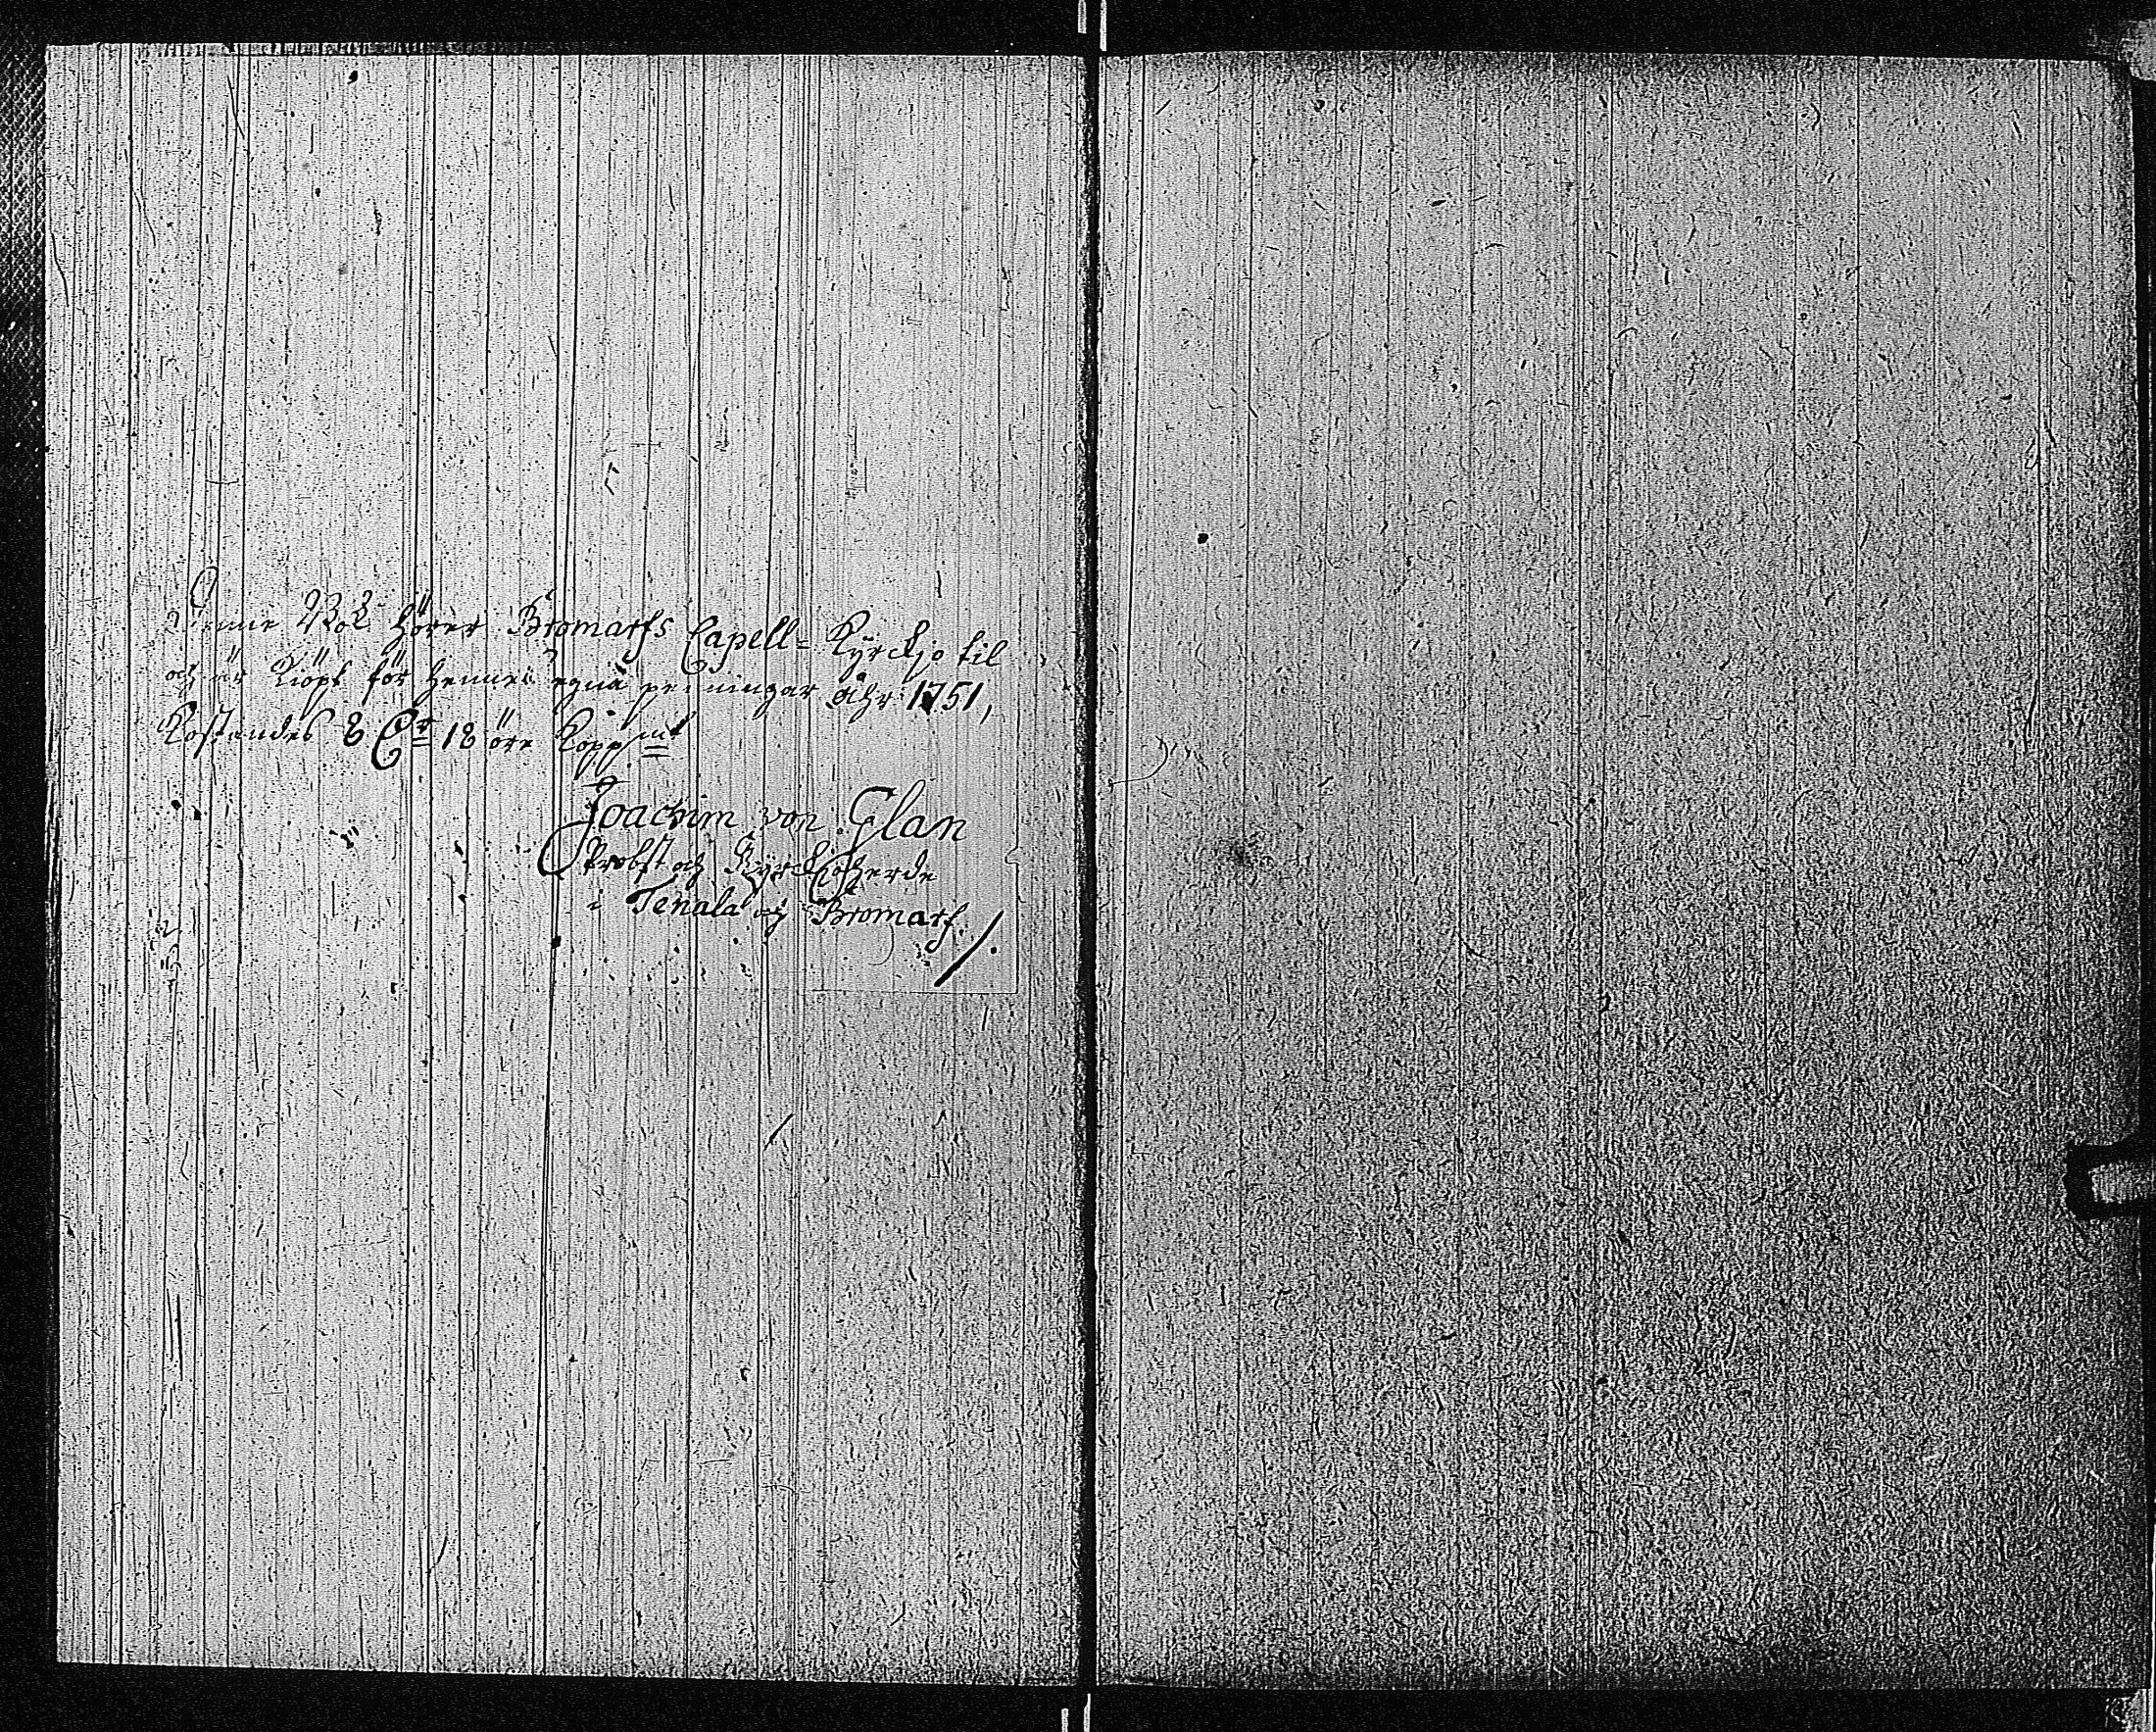 Denne Bok hörer Bromarfs Capell-Kyrckjo til
och är Kiöpt för hennes egna penningar åhr 1751,
Kostandes 8 Dr 18 öre Kopp.mt
Joachim von Glan
Probst och Kyrckjoherde
i Tenala och Bromarf.